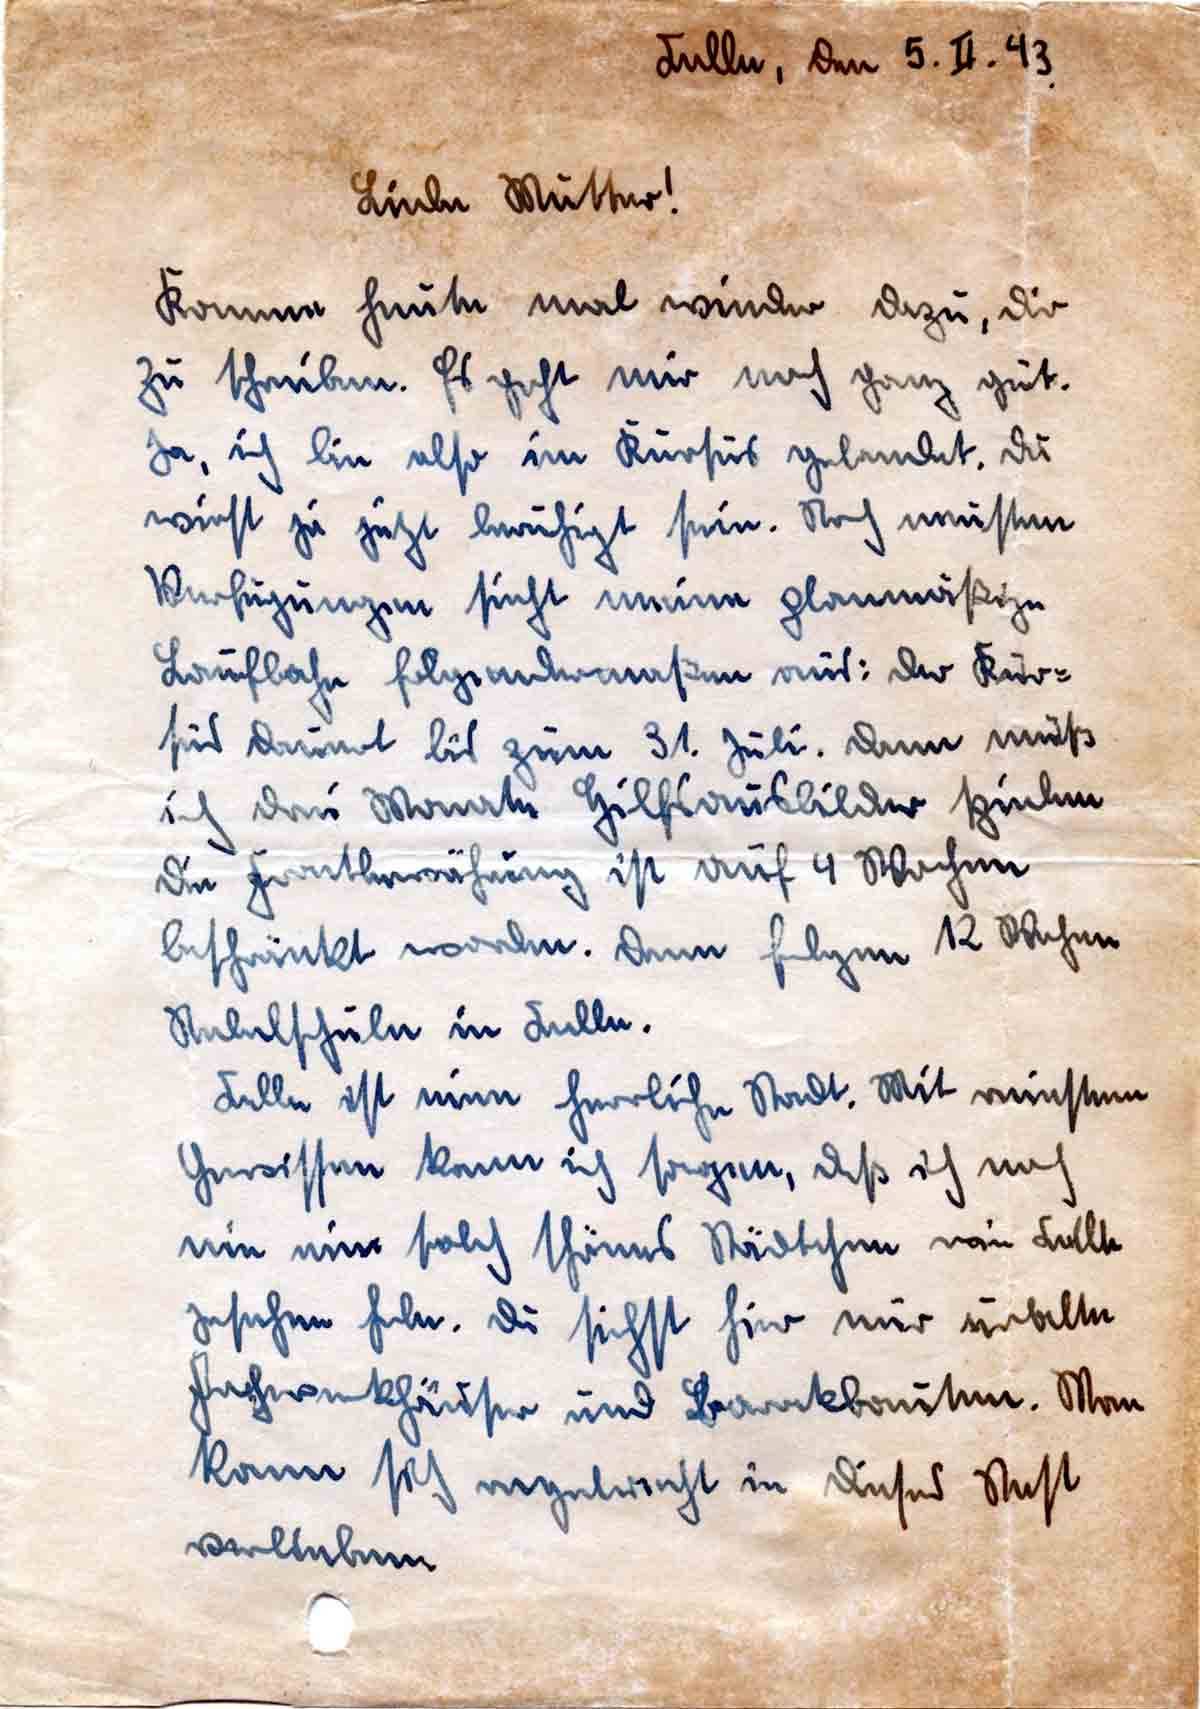 Celle, den 5. II. 43.
Liebe Mutter!
Komme heute mal wieder dazu, dir
zu schreiben. Es geht mir noch ganz gut.
Ja, ich bin also im Kursus gelandet. Du
wirst ja jetzt beruhigt sein. Nach neusten
Verfügungen sieht meine planmäßige
Laufbahn folgendermaßen aus: der Kur=
sus dauert bis zum 31. Juli. Dann muß
ich drei Monate Hilfsausbilder spielen
die Frontbewährung ist auf 4 Wochen
beschränkt worden. Dann folgen 12 Wochen
Nebelschule in Celle.
Celle ist eine herrliche Stadt. Mit reinstem
Gewissen kann ich sagen, daß ich noch
nie ein solch schönes Städtchen wie Celle
gesehen habe. Du siehst hier nur uralte
Fachwerkhäuser und Barockbauten. Man
kann sich regelrecht in dieses Nest
verlieben